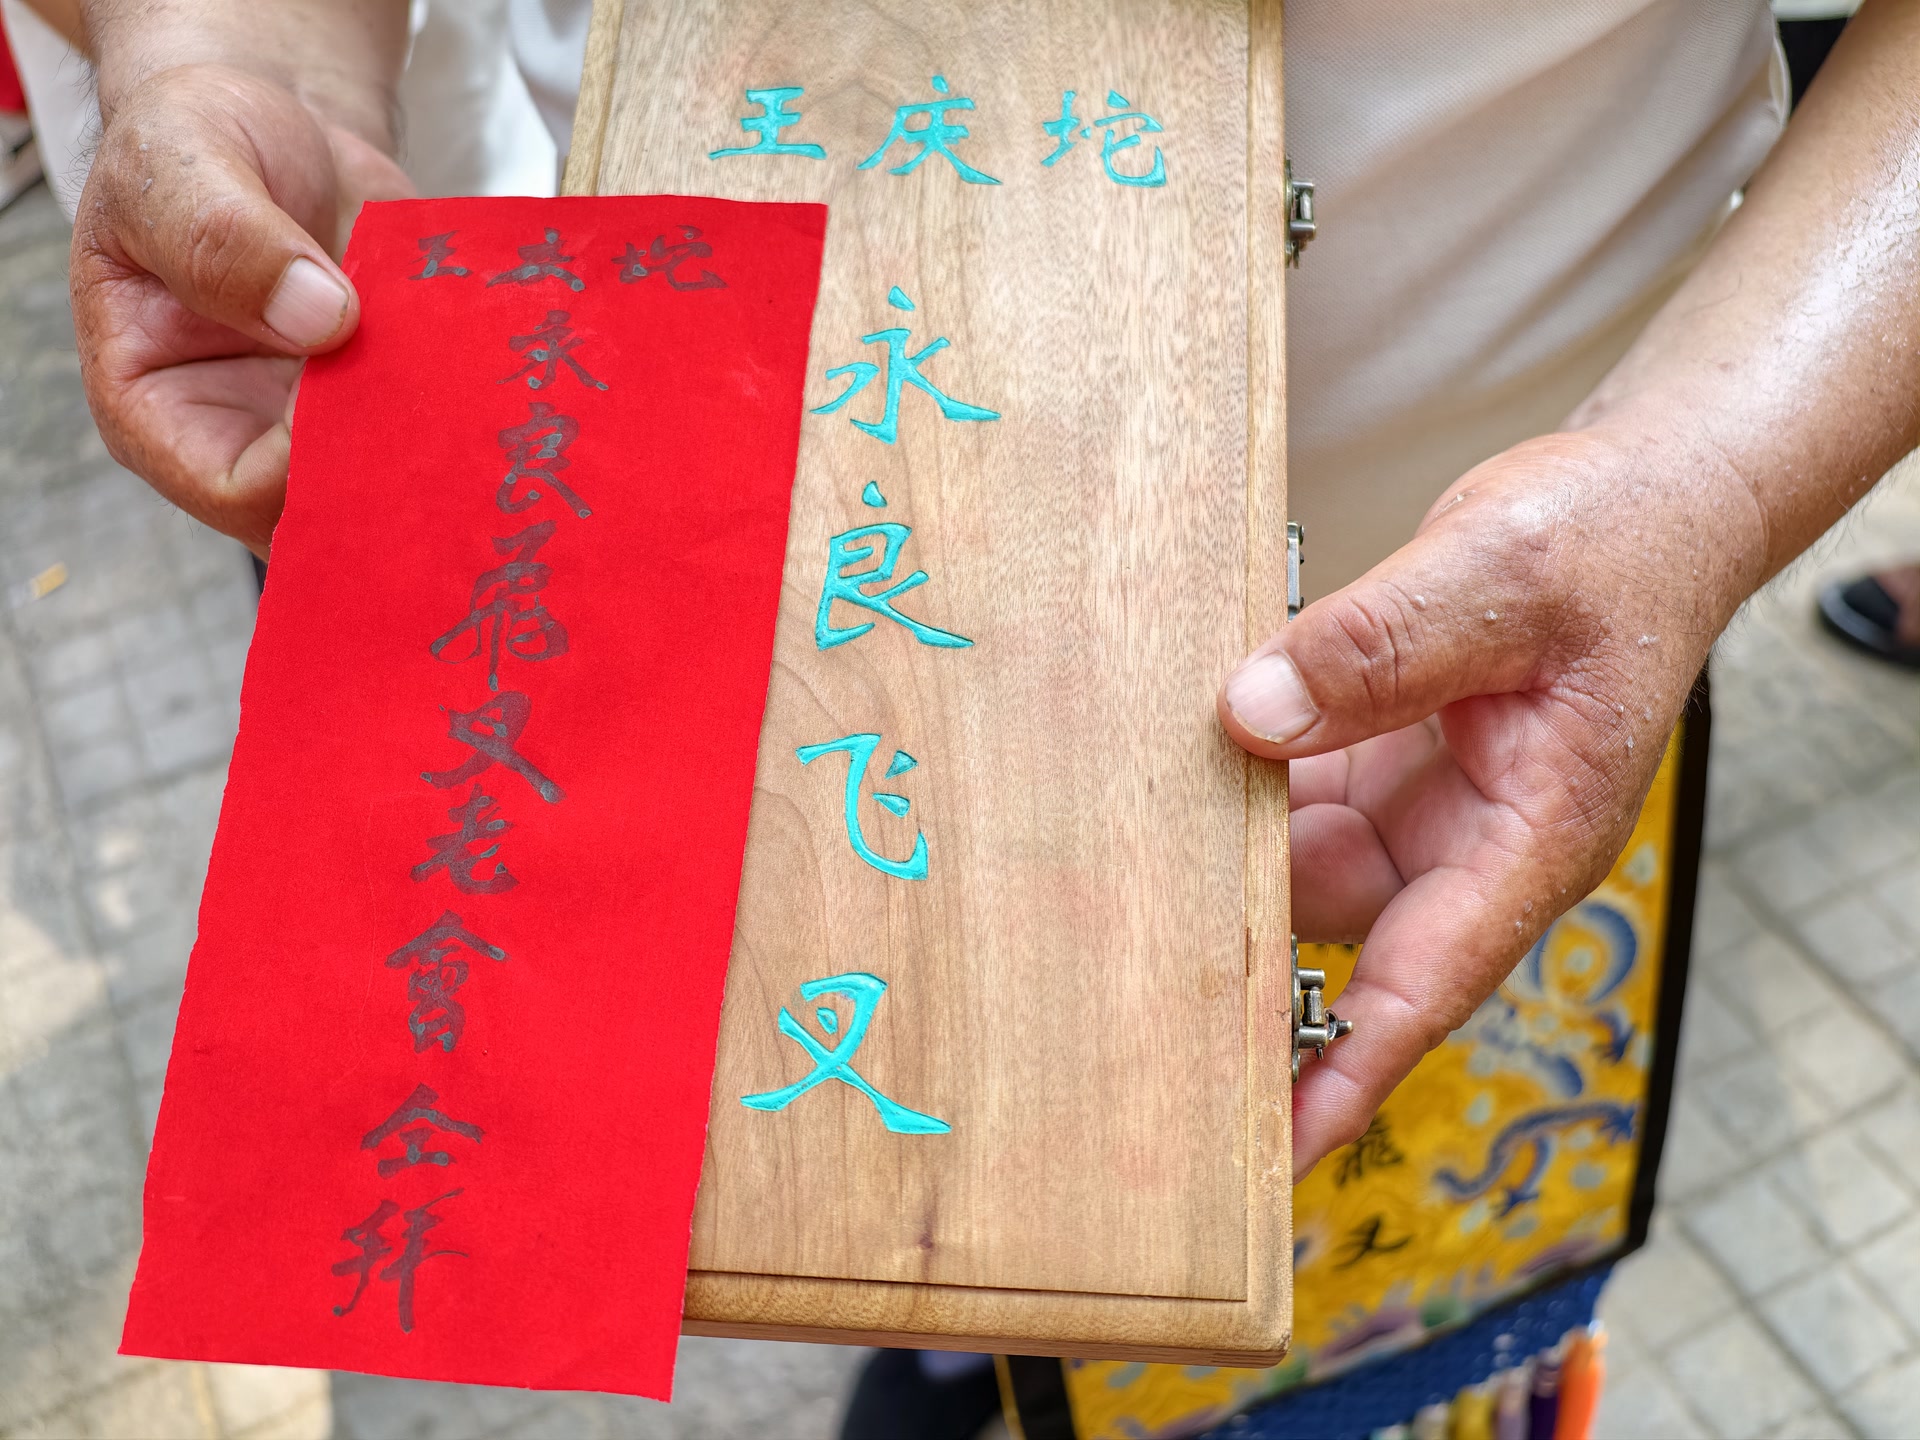 王庆坨
永良飛叉老會仝拜
王庆坨
永良飞叉
飛叉